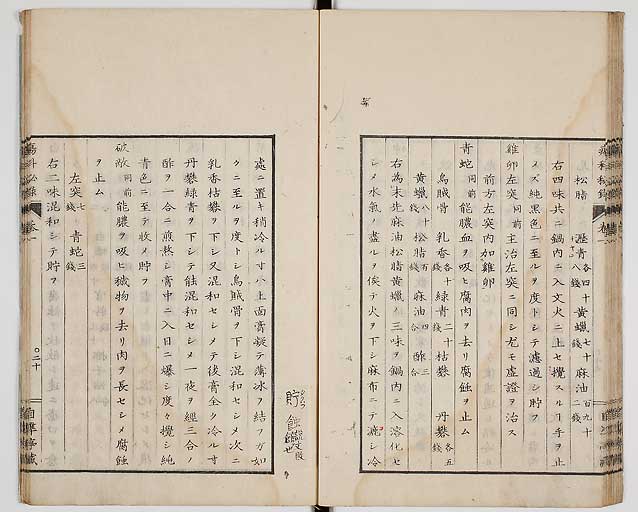 松脂 瀝青各四十八錢 黄蠟七十二錢 麻油百九十二錢
右四味共ニ鍋内ニ入文火ニ上セ攪スルヿ手ヲ止
メス純黒色ニ至ルヲ度トシテ濾過シ貯フ
雞卵左突同前 主治左突ニ同シ尤モ虚證ヲ治ス
前方左突内加雞卵
青蛇同前 能膿血ヲ吸ヒ腐肉ヲ去リ腐蝕ヲ止ム
烏賊骨 乳香各十錢 緑青二十錢 枯礬 丹礬各五錢
黄蠟八十錢 松脂百錢 麻油四合 酢三合
右為末先麻油松脂黄蠟ノ三味ヲ鍋内ニ入溶化セ
シメ水氣ノ盡ルヲ俟テ火ヲ下シ麻布ニテ漉シ冷
處ニ置キ稍冷ル寸ハ上面膏凝テ薄冰ヲ結フガ如
クニ至ルヲ度トシ烏賊骨ヲ下シ混和セシメ次ニ
乳香枯礬ヲ下シ又混和セシメテ後膏全ク冷ル寸
丹礬緑青ヲ下シテ能混和セシメ一夜ヲ經二合ノ
酢ヲ一合ニ煎熬シ膏中ニ入日ニ爆シ度々攪シ純
青色ニ至テ收メ貯フ
破敵同前 能膿ヲ吸ヒ穢物ヲ去リ肉ヲ長セシメ腐蝕
ヲ止ム
左突錢 青蛇三錢
右二味混和シテ貯フ
瘍科秘録 卷一
〇二十
貯
蝕